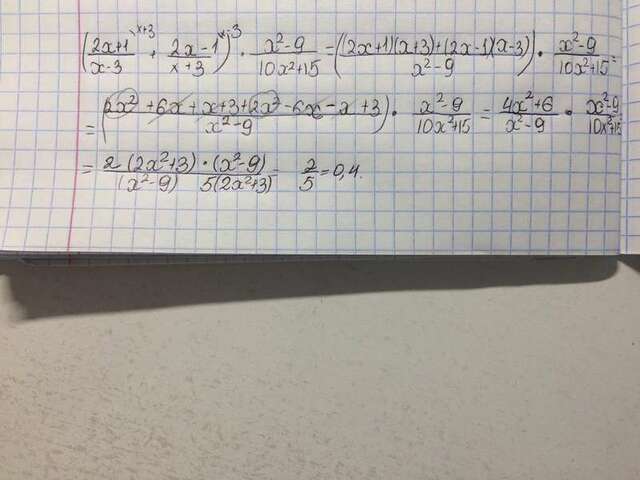 (2x+1/x-3 ^x+3 + 2x-1/x+3 ^x-3) · x²-9/10x²+15 = ((2x+1)(x+3)+(2x-1)(x-3)/x²-9) · x²-9/10x²+15 =
= (2x²+6x+x+3+2x²-6x-x+3/x²-9) · x²-9/10x²+15 = 4x²+6/x²-9 · x²-9/10x²+15
= 2(2x²+3)·(x²-9)/(x²-9) 5(2x²+3) = 2/5 = 0,4.